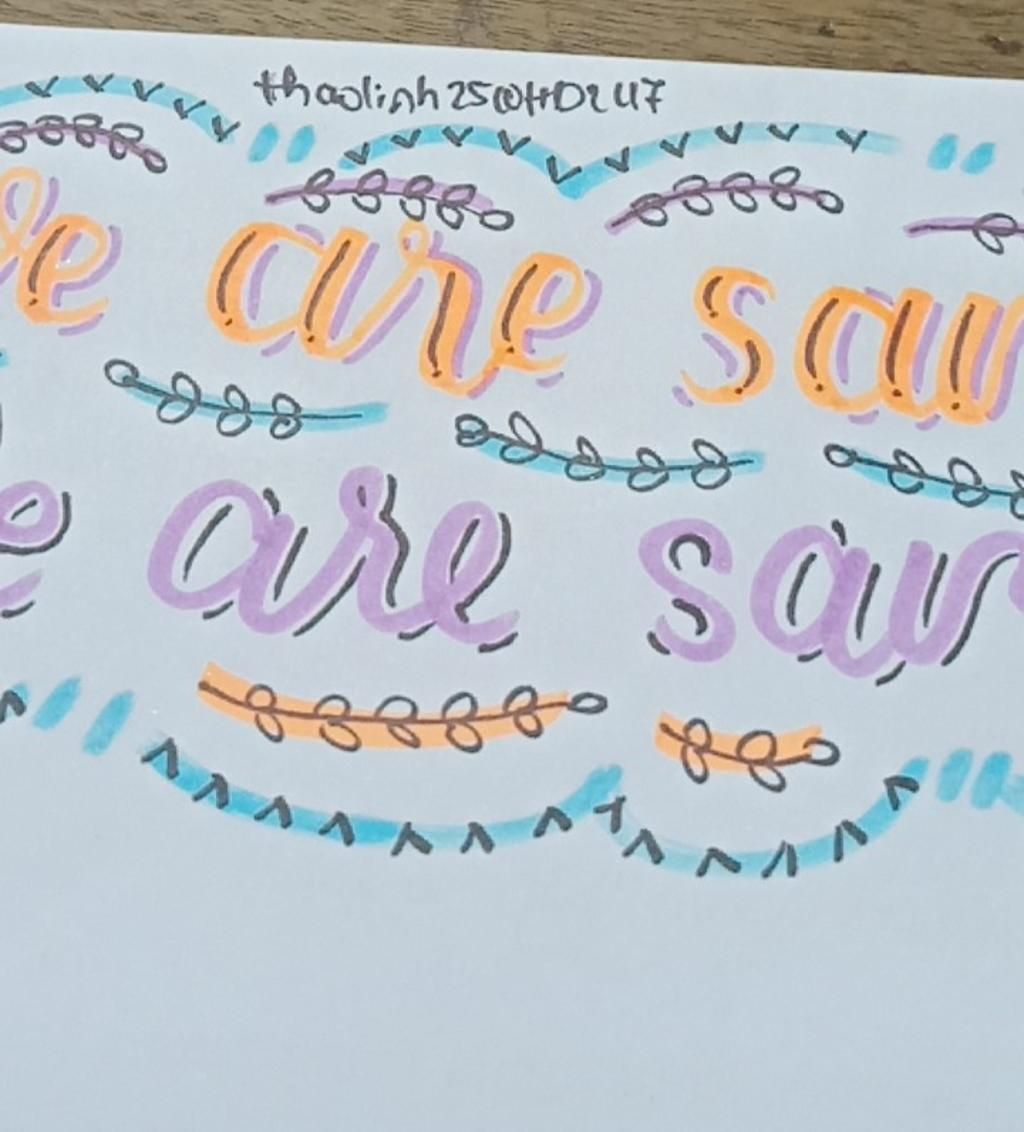 thaolinh25@HD247
e are sav
e are sav